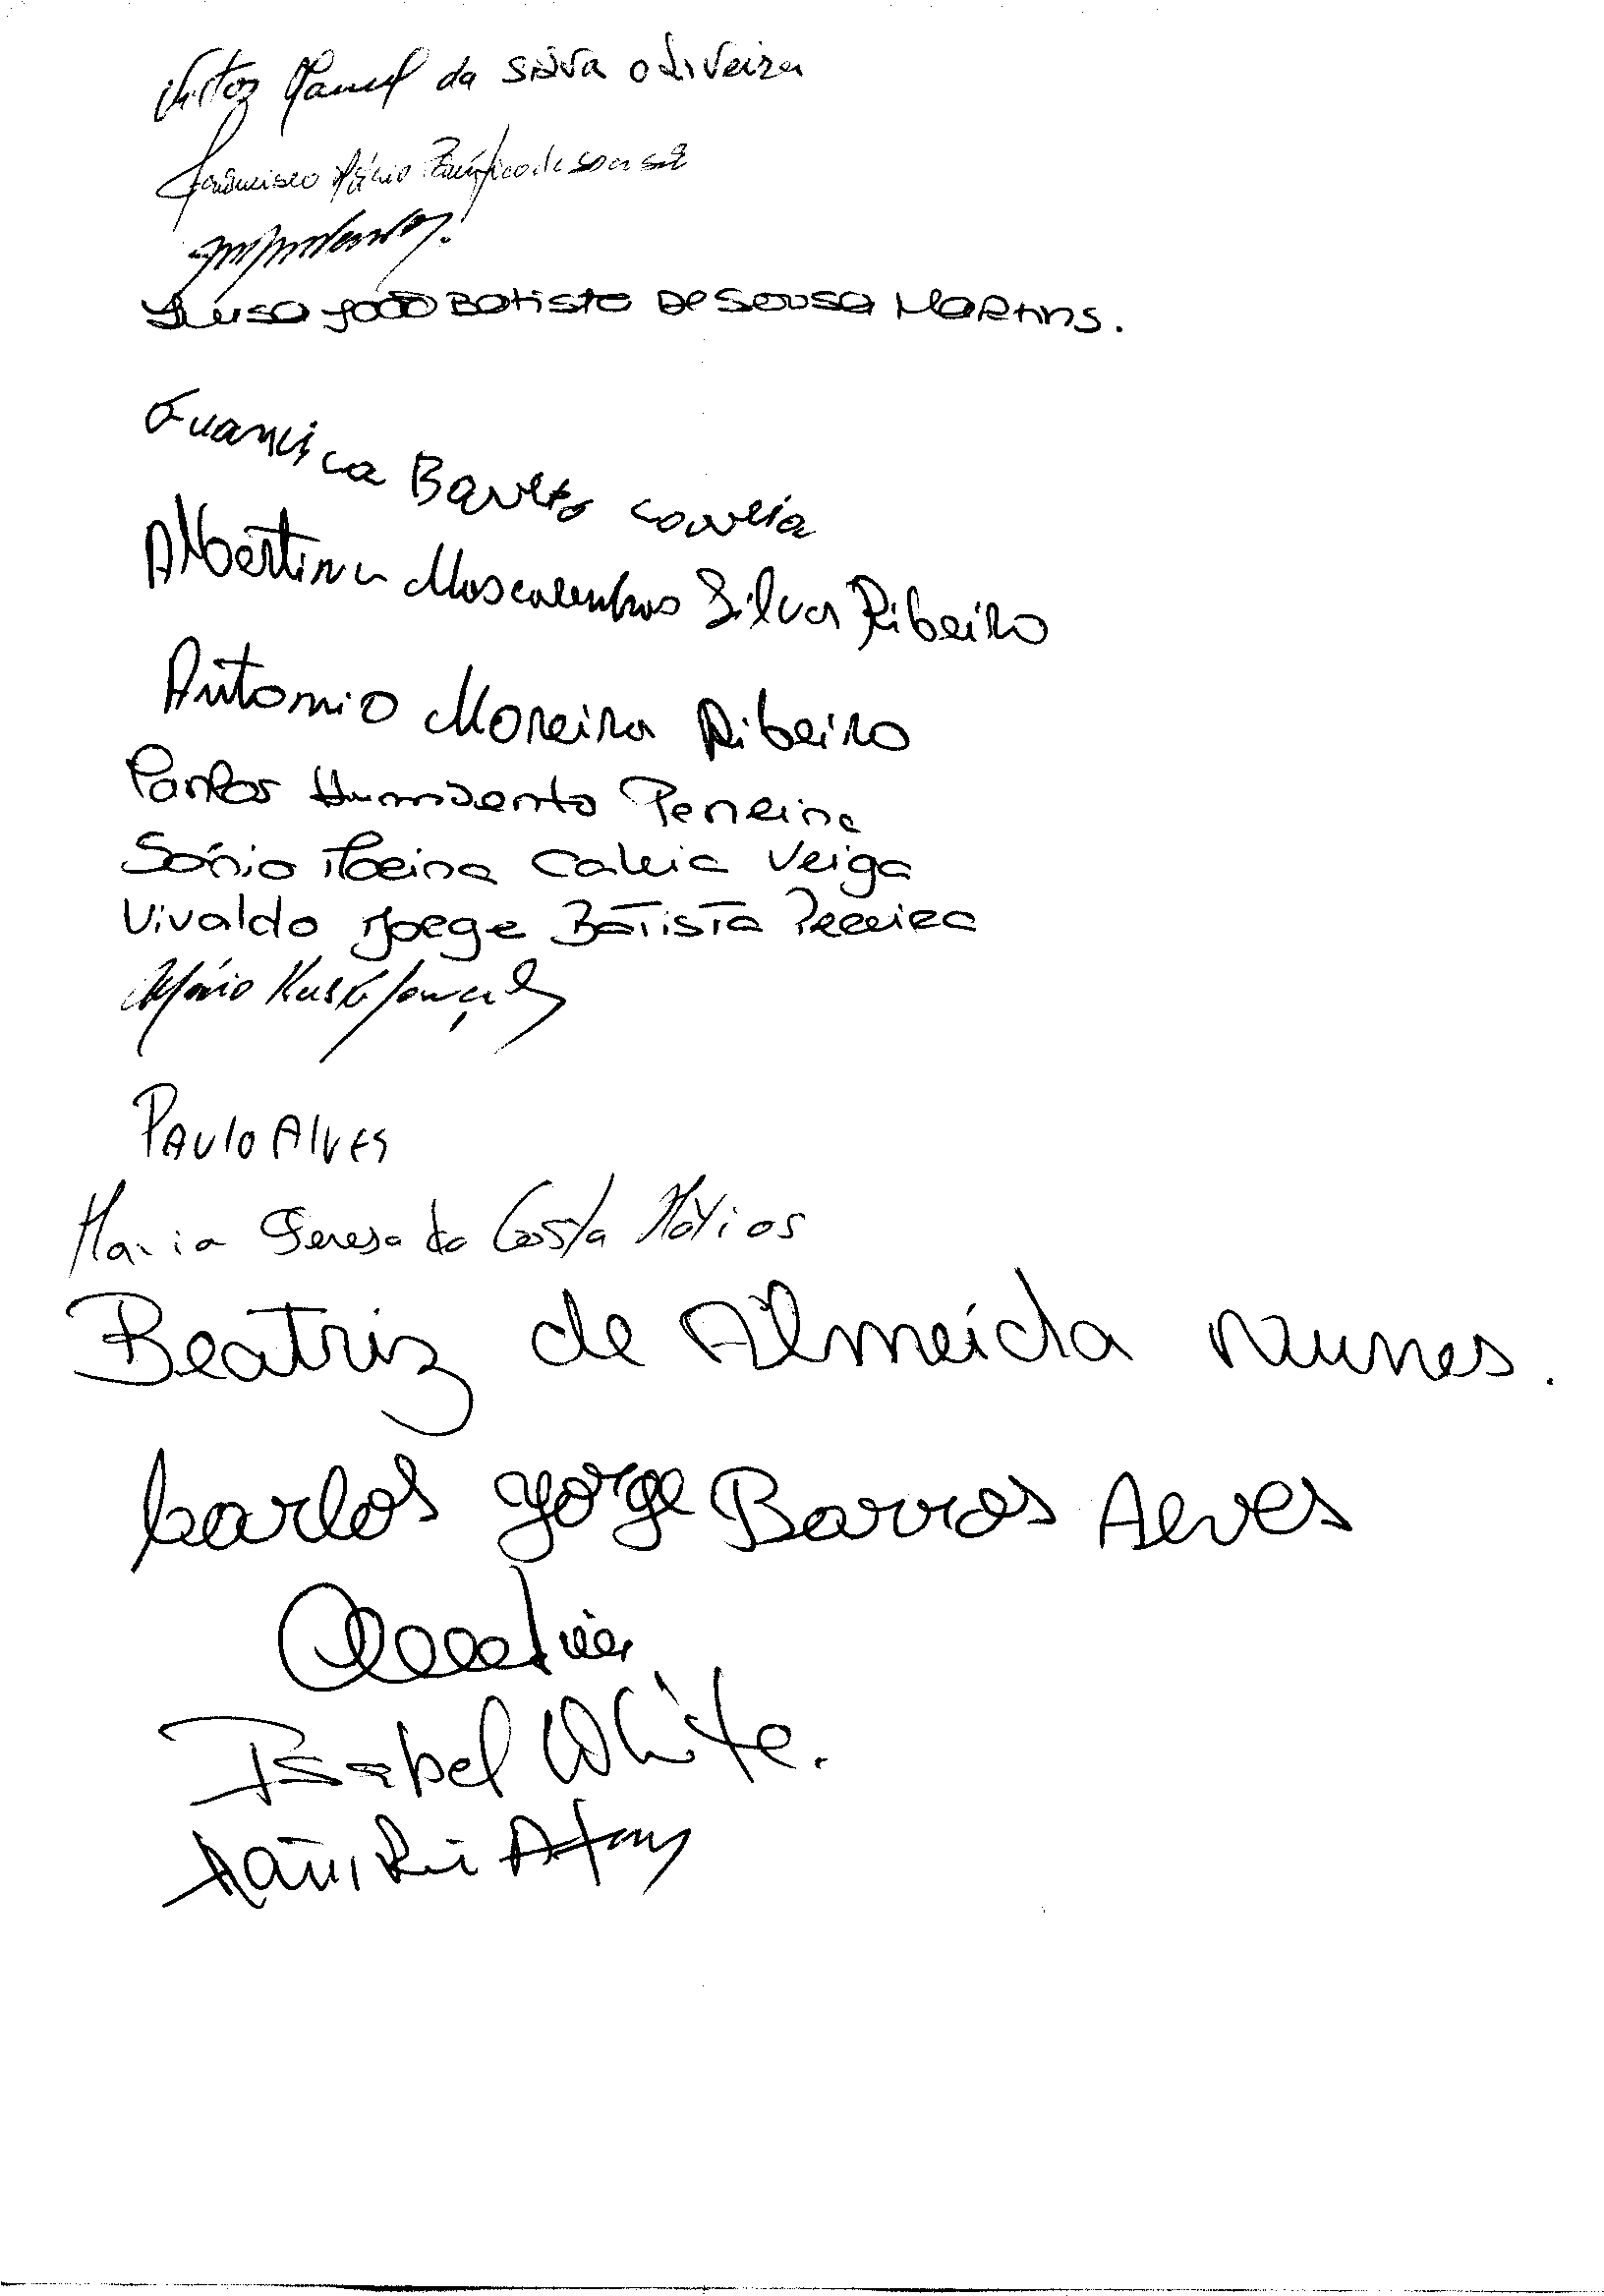 Victor Manuel da Silva Oliveira
Francisco Mário Pacífico de Sousa
Luisa João Batista De Sousa Martins.
Francisca Barreto Correia
Albertina Mascarenhas Silva Ribeiro
Antonio Moreira Ribeiro
Carlos Humberto Pereira
Sónia Caleia Veiga
Vivaldo Jorge Batista Pereira
Mário Gonçalves
Paulo Alves
Maria Teresa da Costa Matias
Beatriz de Almeida Nunes.
Carlos Jorge Barros Alves
Isabel White.
Rui